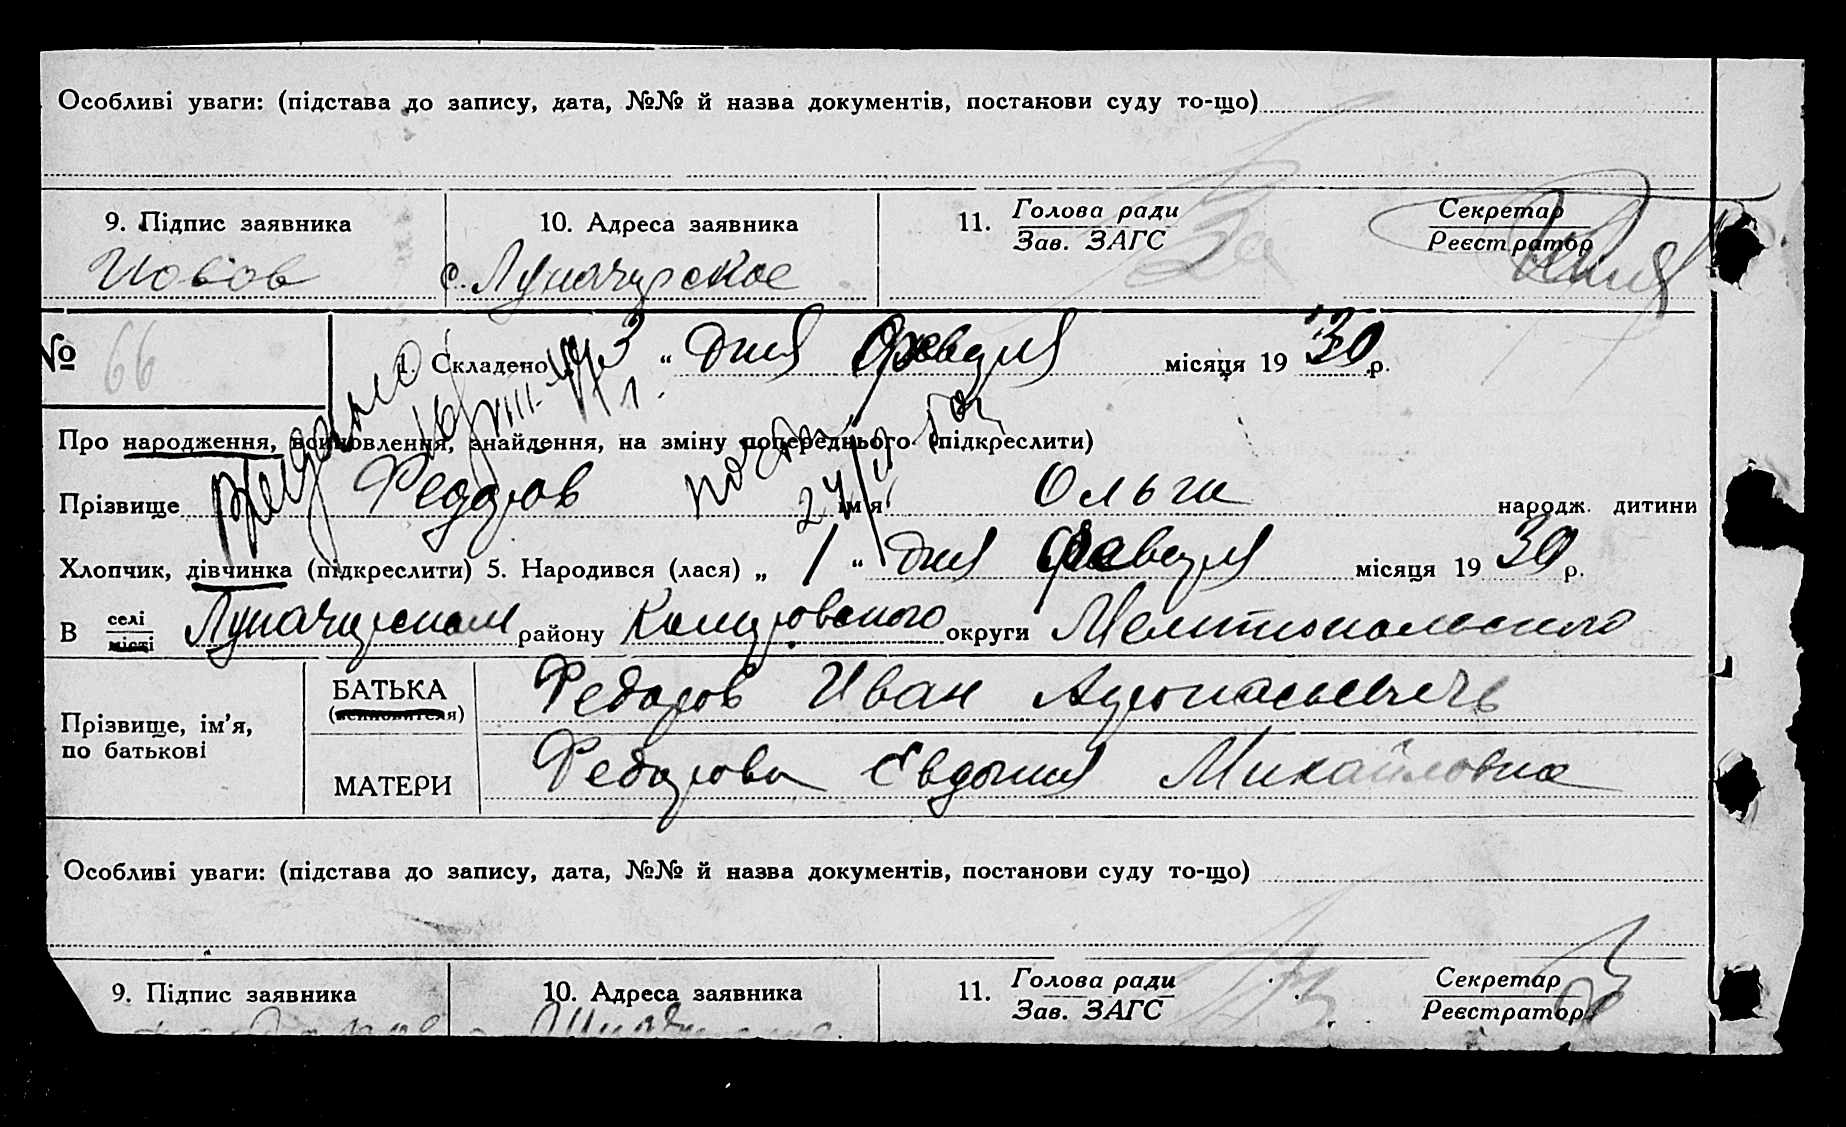 Особливі уваги: (підстава до запису, дата, №№ й назва документів, постанови суду то-що)
9. Підпис заявника 10. Адреса заявника 11. Голова ради Секретар
Зав. ЗАГС Реєстратор
с. Луначарское
№ 66 1. Складено „3“ дня Февраля місяця 1930 р.
Про народження, всиновлення, знайдення, на зміну попереднього (підкреслити)
Прізвище Федоров ім'я Ольга народж. дитини
Хлопчик, дівчинка (підкреслити) 5. Народився (лася) „1“ дня Февраля місяця 1930 р.
В селі Луначарском району округи Мелитопольского
місті
Прізвище, ім'я, по батькові
БАТЬКА Федоров Иван
(всиновителя)
МАТЕРИ Федорова Евдокия Михайловна
Особливі уваги: (підстава до запису, дата, №№ й назва документів, постанови суду то-що)
9. Підпис заявника 10. Адреса заявника 11. Голова ради Секретар
Зав. ЗАГС Реєстратор